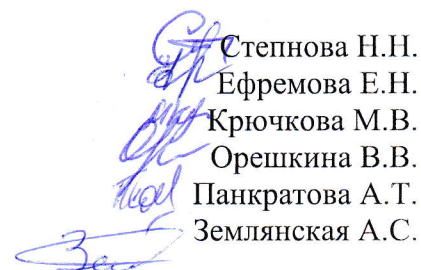 Степнова Н.Н.
Ефремова Е.Н.
Крючкова М.В.
Орешкина В.В.
Панкратова А.Т.
Землянская А.С.